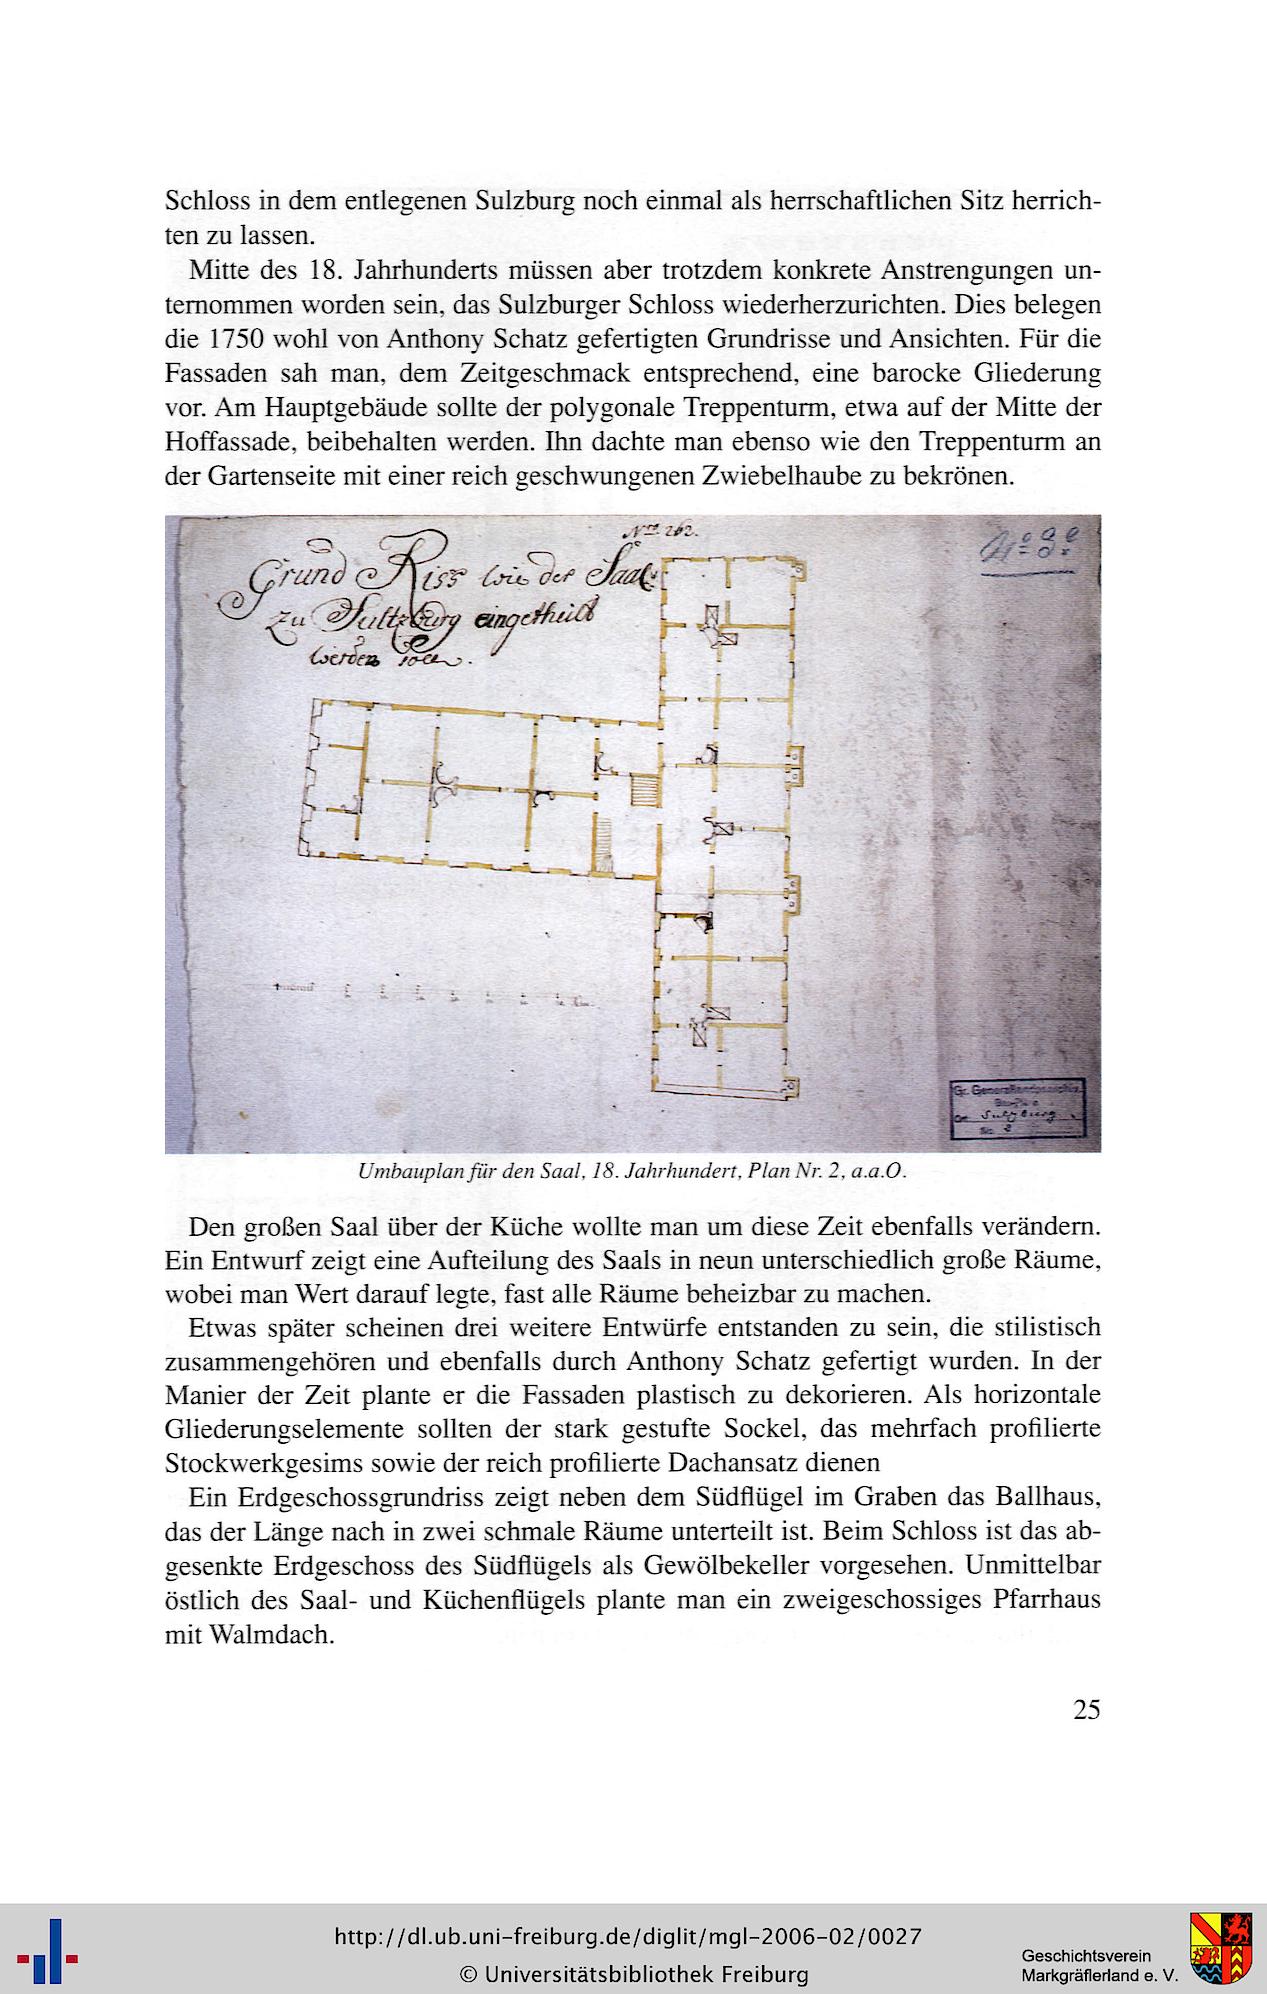 Schloss in dem entlegenen Sulzburg noch einmal als herrschaftlichen Sitz herrich-
ten zu lassen.
Mitte des 18. Jahrhunderts müssen aber trotzdem konkrete Anstrengungen un-
ternommen worden sein, das Sulzburger Schloss wiederherzurichten. Dies belegen
die 1750 wohl von Anthony Schatz gefertigten Grundrisse und Ansichten. Für die
Fassaden sah man, dem Zeitgeschmack entsprechend, eine barocke Gliederung
vor. Am Hauptgebäude sollte der polygonale Treppenturm, etwa auf der Mitte der
Hoffassade, beibehalten werden. Ihn dachte man ebenso wie den Treppenturm an
der Gartenseite mit einer reich geschwungenen Zwiebelhaube zu bekrönen.
Nro 262.
Grund Riss wie der Saal
zu Sultzburg eingetheilt
werden soll.
Gr. Generallandesarchiv
Baupläne
Ort Sulzburg
No. 2
Umbauplan für den Saal, 18. Jahrhundert, Plan Nr. 2, a.a.O.
Den großen Saal über der Küche wollte man um diese Zeit ebenfalls verändern.
Ein Entwurf zeigt eine Aufteilung des Saals in neun unterschiedlich große Räume,
wobei man Wert darauf legte, fast alle Räume beheizbar zu machen.
Etwas später scheinen drei weitere Entwürfe entstanden zu sein, die stilistisch
zusammengehören und ebenfalls durch Anthony Schatz gefertigt wurden. In der
Manier der Zeit plante er die Fassaden plastisch zu dekorieren. Als horizontale
Gliederungselemente sollten der stark gestufte Sockel, das mehrfach profilierte
Stockwerkgesims sowie der reich profilierte Dachansatz dienen
Ein Erdgeschossgrundriss zeigt neben dem Südflügel im Graben das Ballhaus,
das der Länge nach in zwei schmale Räume unterteilt ist. Beim Schloss ist das ab-
gesenkte Erdgeschoss des Südflügels als Gewölbekeller vorgesehen. Unmittelbar
östlich des Saal- und Küchenflügels plante man ein zweigeschossiges Pfarrhaus
mit Walmdach.
25
http://dl.ub.uni-freiburg.de/diglit/mgl-2006-02/0027
© Universitätsbibliothek Freiburg
Geschichtsverein
Markgräflerland e. V.